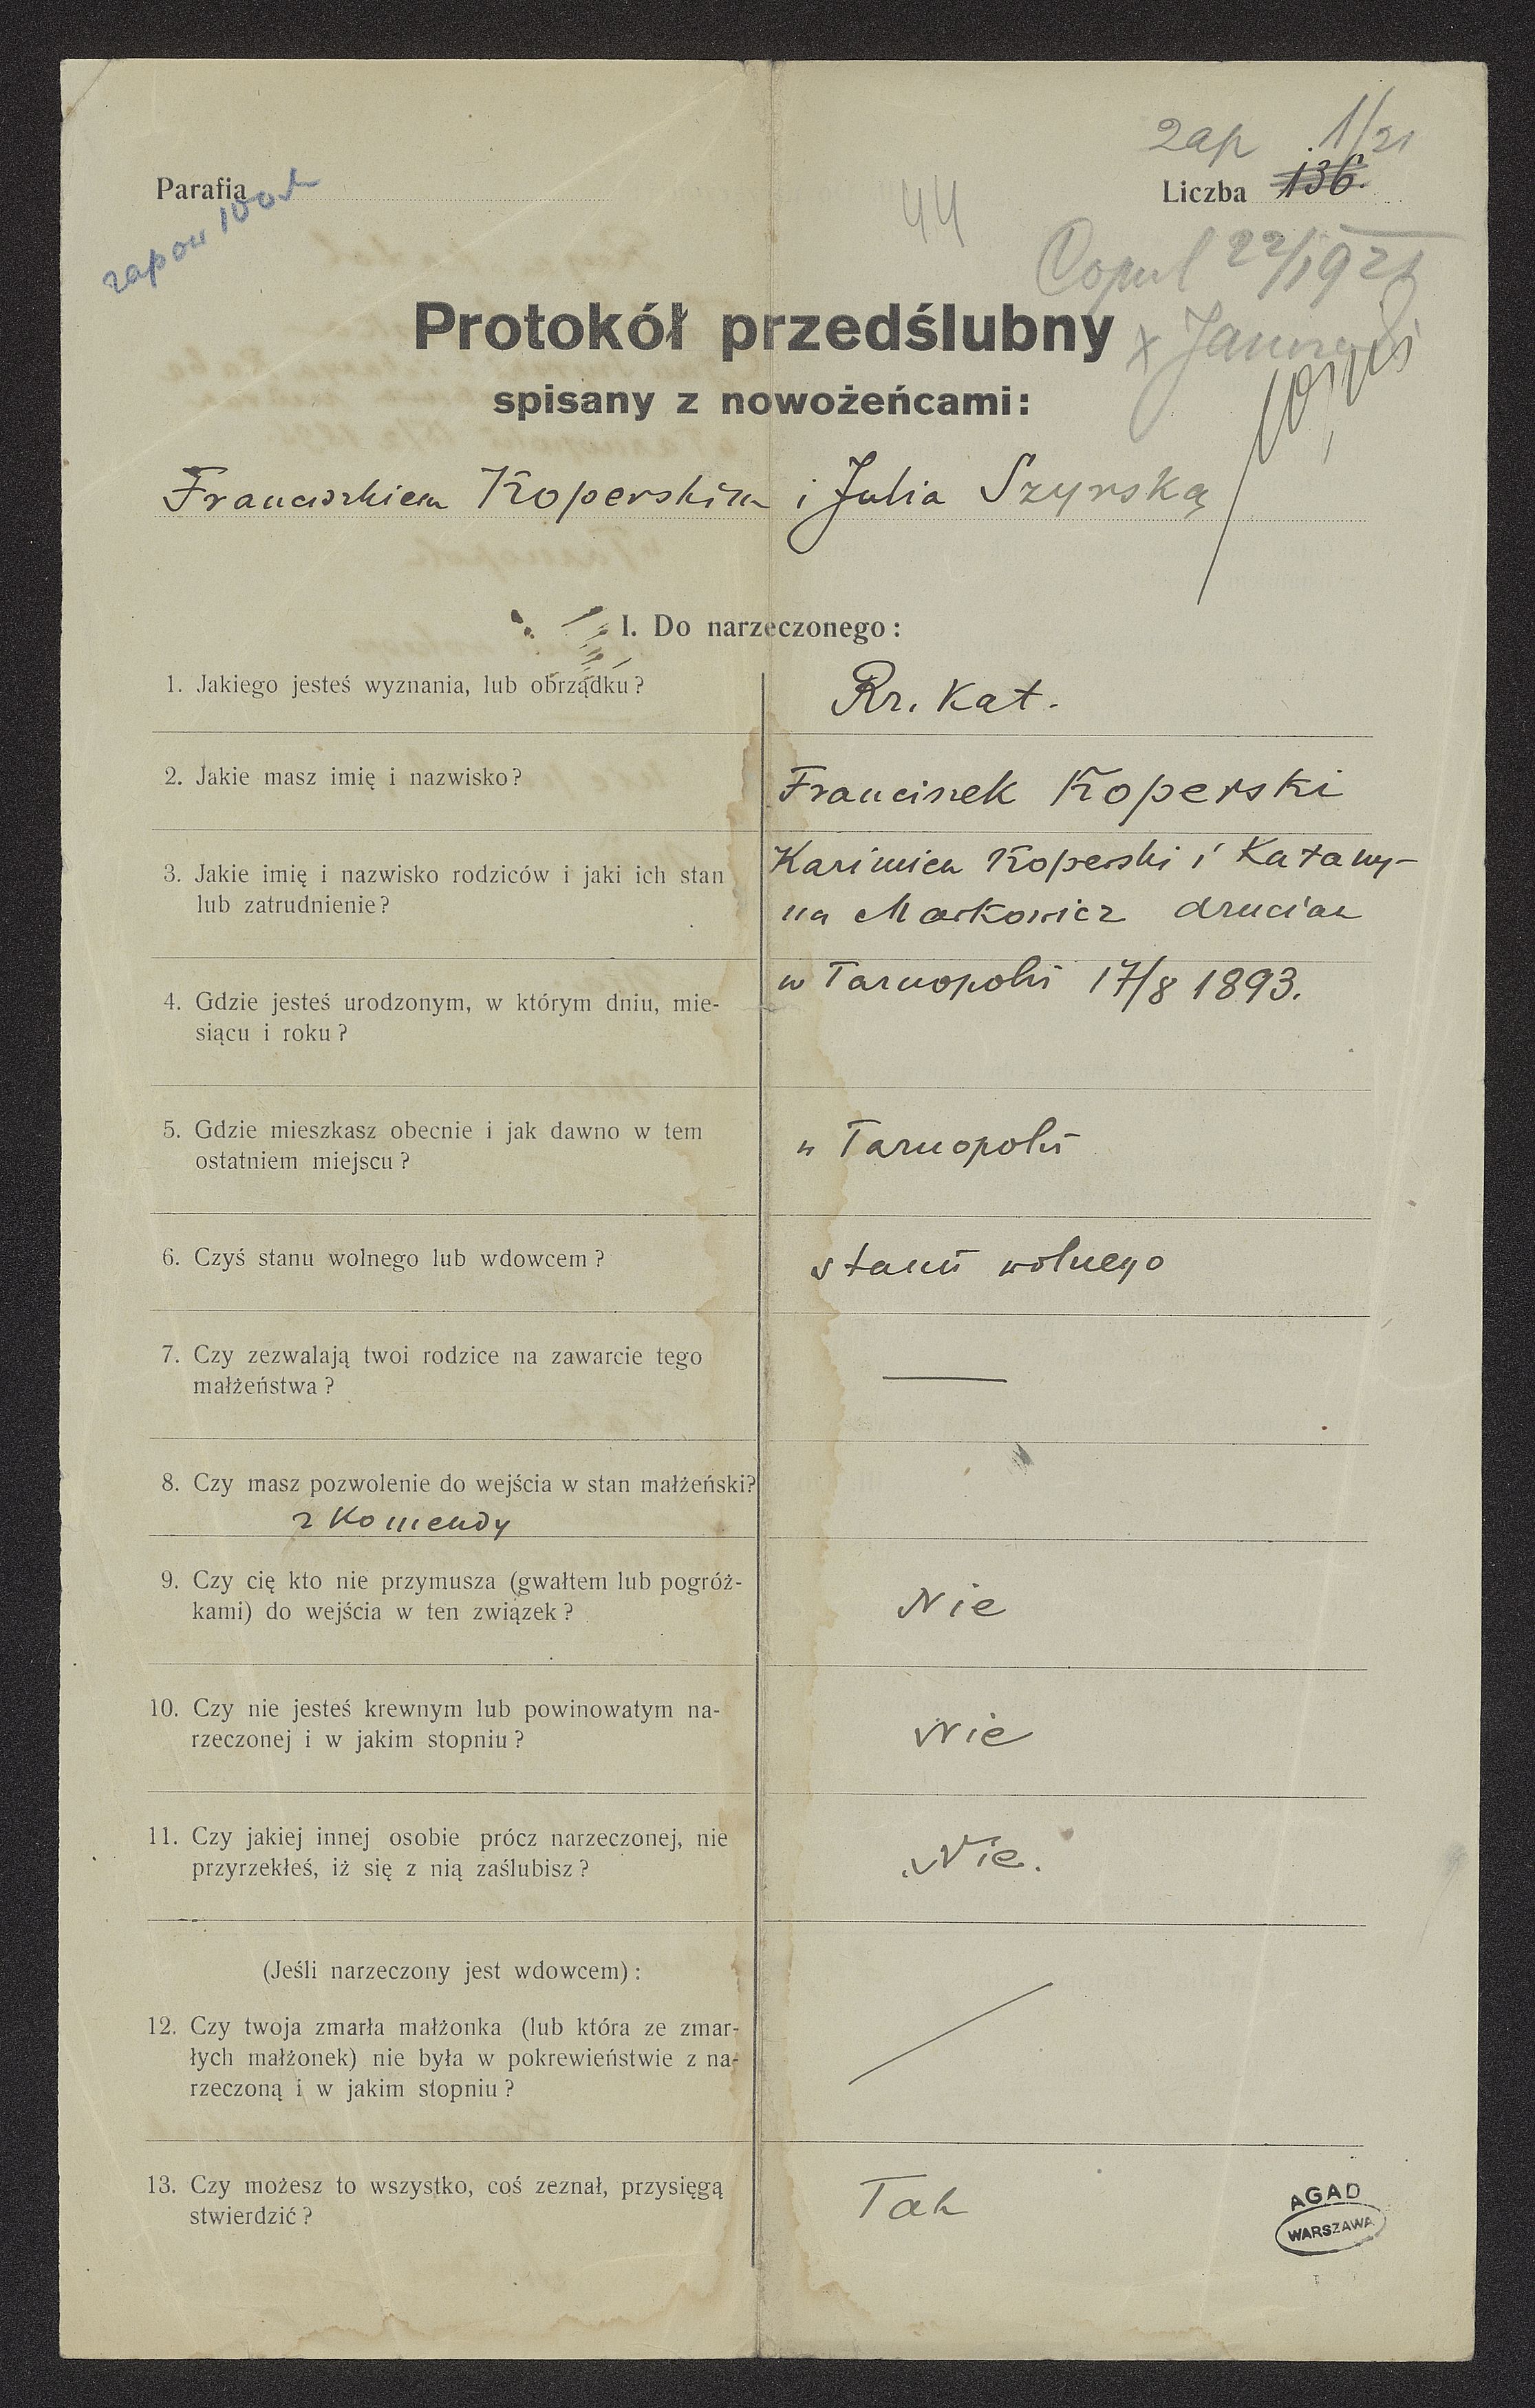 zap 1/21
Parafia
Liczba 136.
zapow 100
44
Copul 22/1921
Protokół przedślubny
spisany z nowożeńcami:
Franciszkiem Koperskim i Julia Szyrską
I. Do narzeczonego:
1. Jakiego jesteś wyznania, lub obrządku?
Rz. Kat.
2. Jakie masz imię i nazwisko?
Franciszek Koperski
3. Jakie imię i nazwisko rodziców i jaki ich stan
lub zatrudnienie?
Kazimierz Koperski i Katarzy-
na Markowicz
4. Gdzie jesteś urodzonym, w którym dniu, mie-
siącu i roku?
w Tarnopolu 17/8 1893.
5. Gdzie mieszkasz obecnie i jak dawno w tem
ostatniem miejscu?
w Tarnopolu
6. Czyś stanu wolnego lub wdowcem?
stanu wolnego
7. Czy zezwalają twoi rodzice na zawarcie tego
małżeństwa?
8. Czy masz pozwolenie do wejścia w stan małżeński?
z Komendy
9. Czy cię kto nie przymusza (gwałtem lub pogróż-
kami) do wejścia w ten związek?
Nie
10. Czy nie jesteś krewnym lub powinowatym na-
rzeczonej i w jakim stopniu?
Nie
11. Czy jakiej innej osobie prócz narzeczonej, nie
przyrzekłeś, iż się z nią zaślubisz?
Nie.
(Jeśli narzeczony jest wdowcem):
12. Czy twoja zmarła małżonka (lub która ze zmar-
łych małżonek) nie była w pokrewieństwie z na-
rzeczoną i w jakim stopniu?
13. Czy możesz to wszystko, coś zeznał, przysięgą
stwierdzić?
Tak
AGAD
WARSZAWA